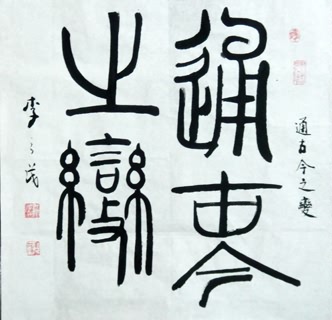 通古今之變
通古今
之變
李之茂